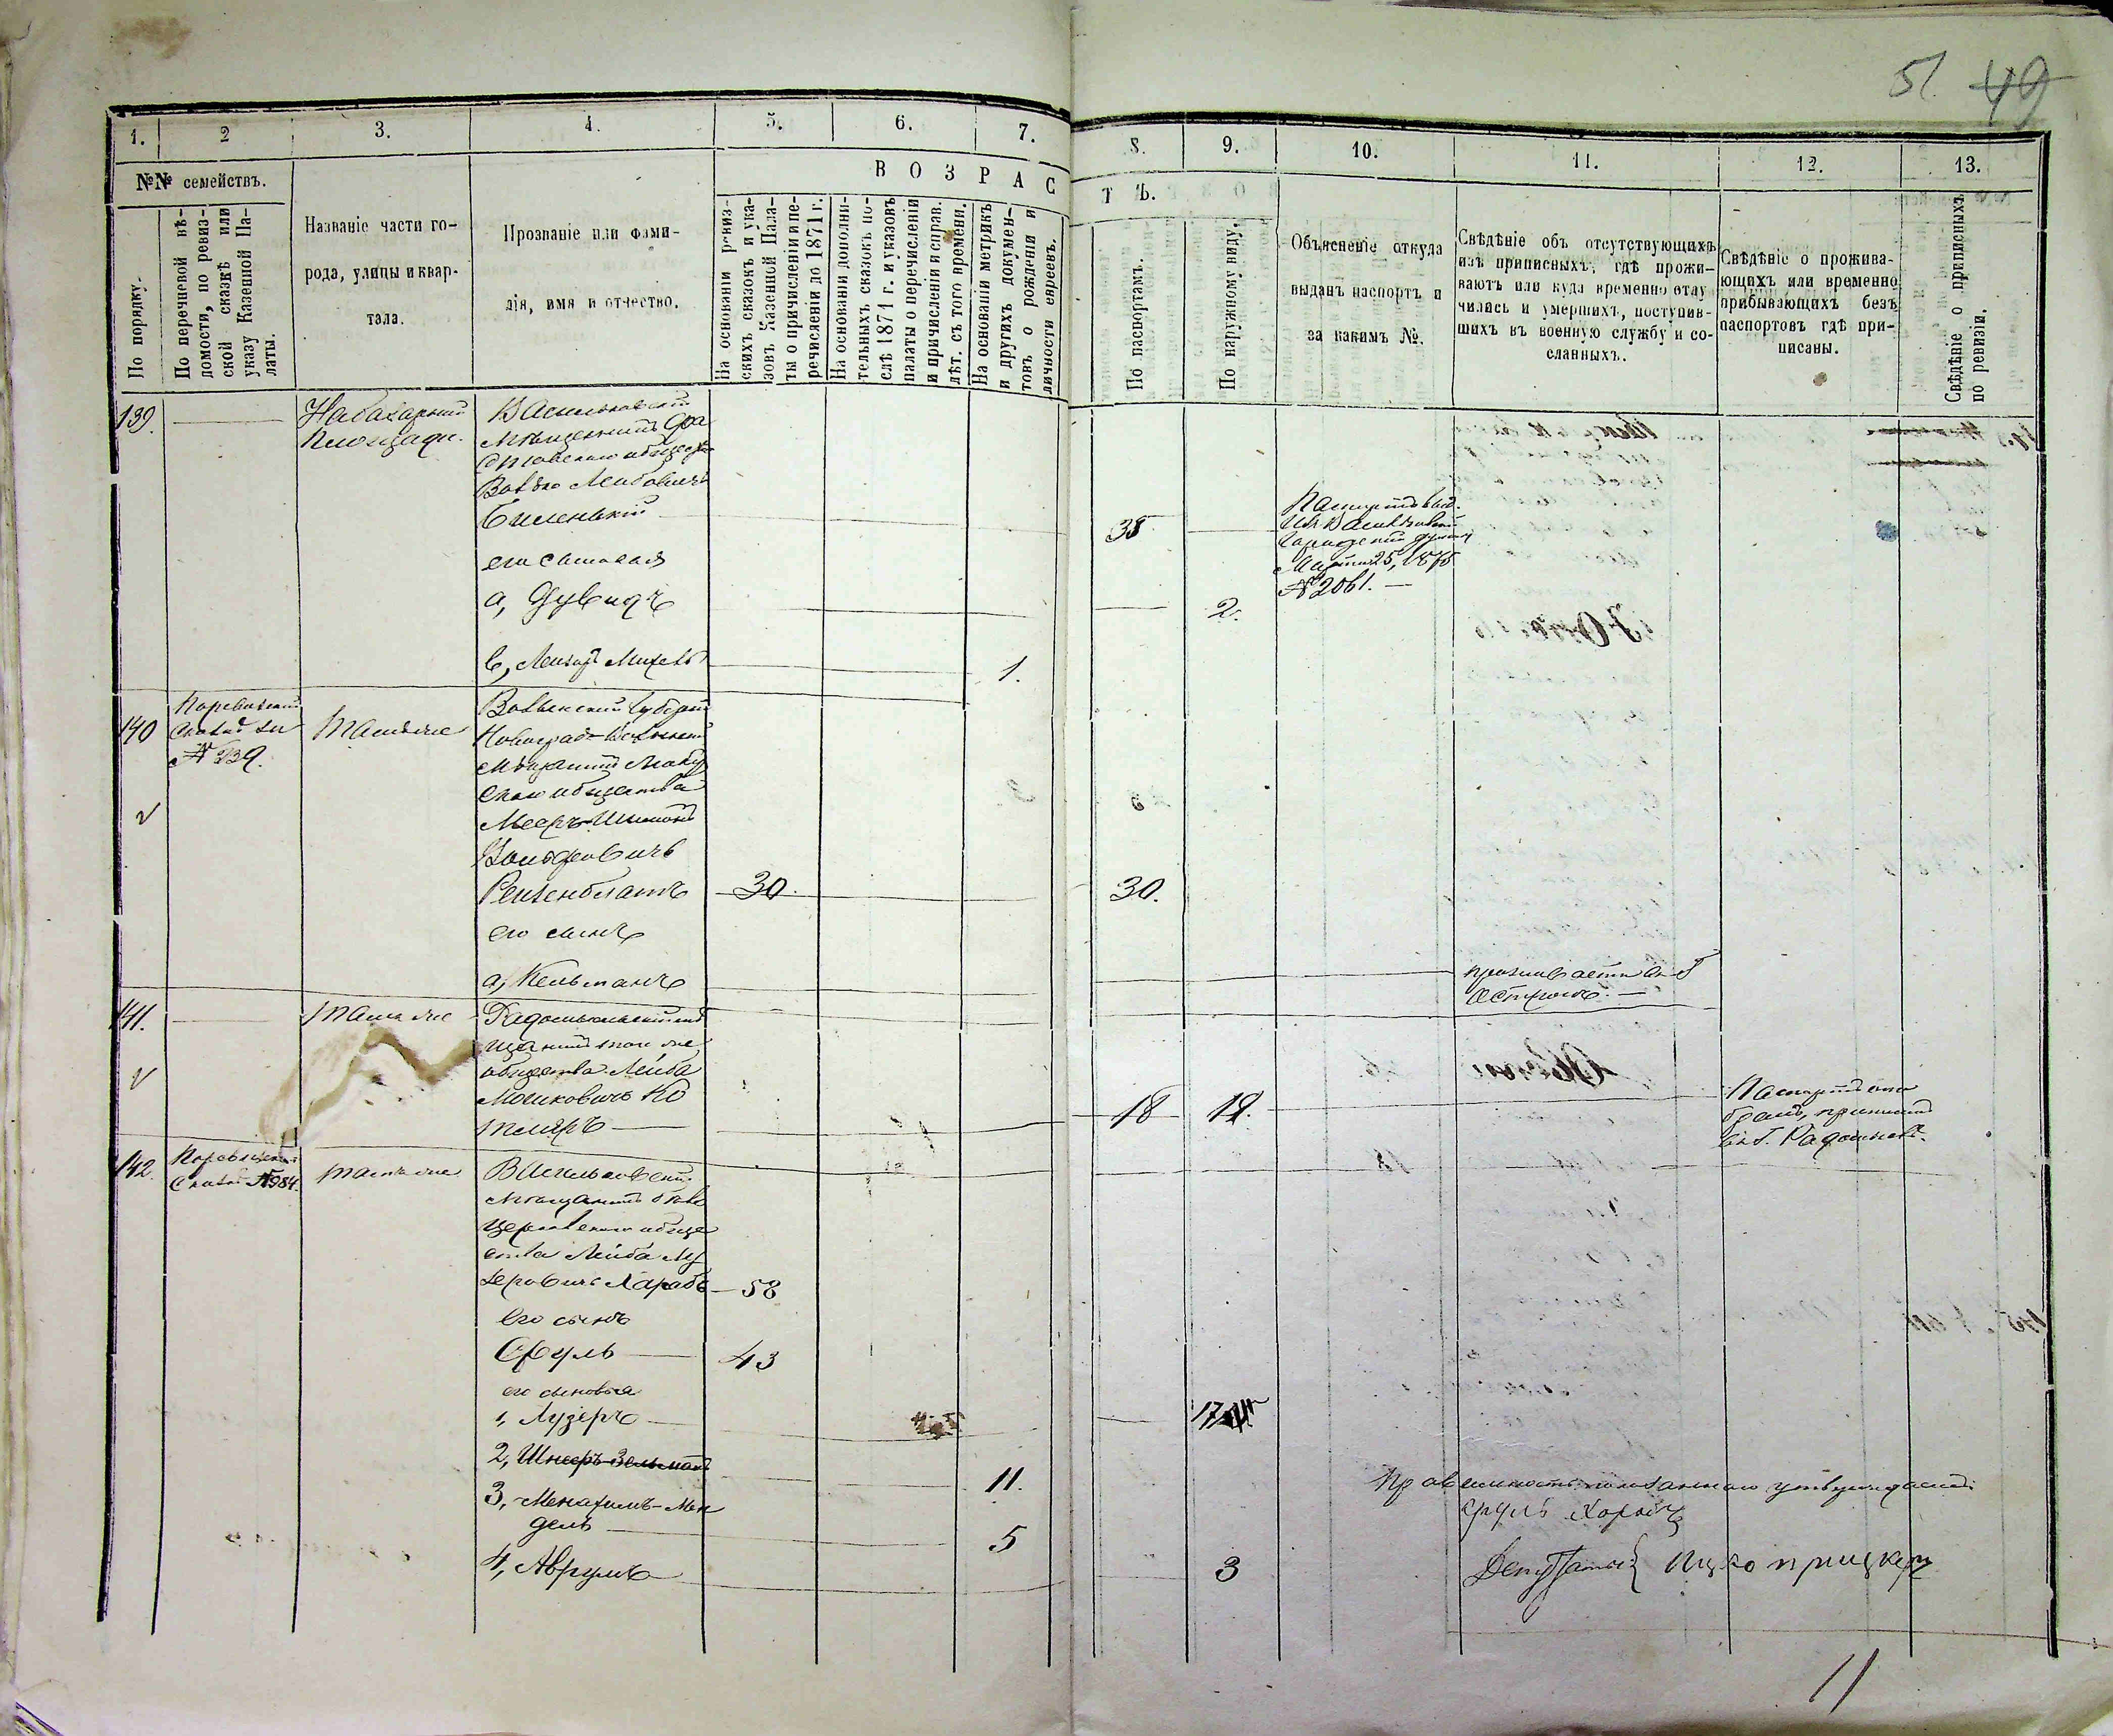 51. 49
1.
2
3.
4.
5.
6.
7.
8.
9.
10.
11.
12.
13.
№№ семействъ.
ВОЗРАС
ТЪ.
По порядку.
По перечневой вѣ-
домости, по ревиз-
ской сказкѣ или
указу Казенной Па-
латы.
Названіе части го-
рода, улицы и квар-
тала.
Прозваніе или фами-
лія, имя и отчество.
На основаніи ревиз-
скихъ сказокъ и ука-
зовъ Казенной Пала-
ты о причисленіи и пе-
речисленіи до 1871 г.
На основаніи дополни-
тельныхъ сказокъ по-
слѣ 1871 г. и указовъ
палаты о перечисленіи
и причисленіи и справ.
лѣт. съ того времени.
На основаніи метрикъ
и другихъ докумен-
товъ о рожденіи и
личности евреевъ.
По паспортамъ.
По наружному виду.
Объясненіе откуда
выданъ паспортъ и
за какимъ №.
Свѣдѣніе объ отсутствующихъ
изъ приписныхъ, гдѣ прожи-
ваютъ или куда временно отлу
чились и умершихъ, поступив-
шихъ въ военную службу и со-
сланныхъ.
Свѣдѣніе о прожива-
ющихъ или временно
прибывающихъ безъ
паспортовъ гдѣ при-
писаны.
Свѣдѣніе о приписныхъ
по ревизіи.
139.
На базарной
площади.
Васильковскій
мѣщанинъ Фа
стовскаго общест
Волько Лейбовичъ
Биленькій
38
Паспортъ выд.
изъ Васильковской
городской думы
Марта 25, 1875
№ 2061. —
его сыновья
а, Дувидъ
2.
в, Лейзоръ Михель
1.
140
По ревизской
сказкѣ за
№ 239.
Тамъ же
Волынской губерніи
Новоградъ-Волынскій
мѣщанинъ
скаго общества
Мееръ-Шимонъ
Вольфовичъ
Рейзенблатъ
30.
30.
его сынъ
а, Кельманъ
проживаетъ въ г.
Острогѣ. —
141.
Тамъ же
Радомысльскій мѣ
щанинъ того же
общества Лейба
Мошковичъ Ко
тляръ —
18
19.
Паспортъ ото
бранъ, приписанъ
въ г. Радомыслѣ.
142.
По ревизской
сказкѣ № 984.
Тамъ же
Васильковскій
мѣщанинъ бѣло
церковскаго обще
ства Лейба Лу
зеровичъ Харабъ
58
его сынъ
Сруль —
43
его сыновья
1, Лузеръ —
17
2, Шнееръ-Зельманъ
11.
3, Менахимъ-Мен
дель —
5
4, Аврумъ
3
Правильность показаннаго утверждаемъ:
Сруль Хорабъ
Депутатъ Ицко Прицкеръ
11